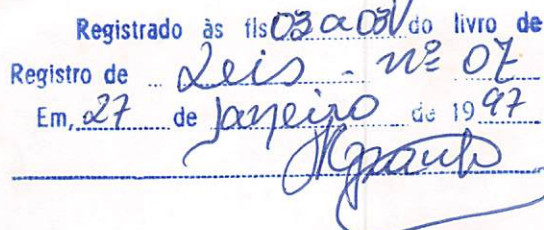 Registrado às fls 03 a 03V do livro de
Registro de Leis - nº 07
Em, 27 de janeiro de 1997